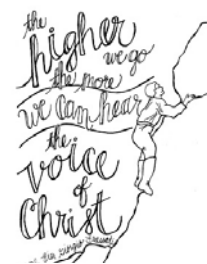 the
higher
we go
the more
we can hear
the
voice
of
Christ